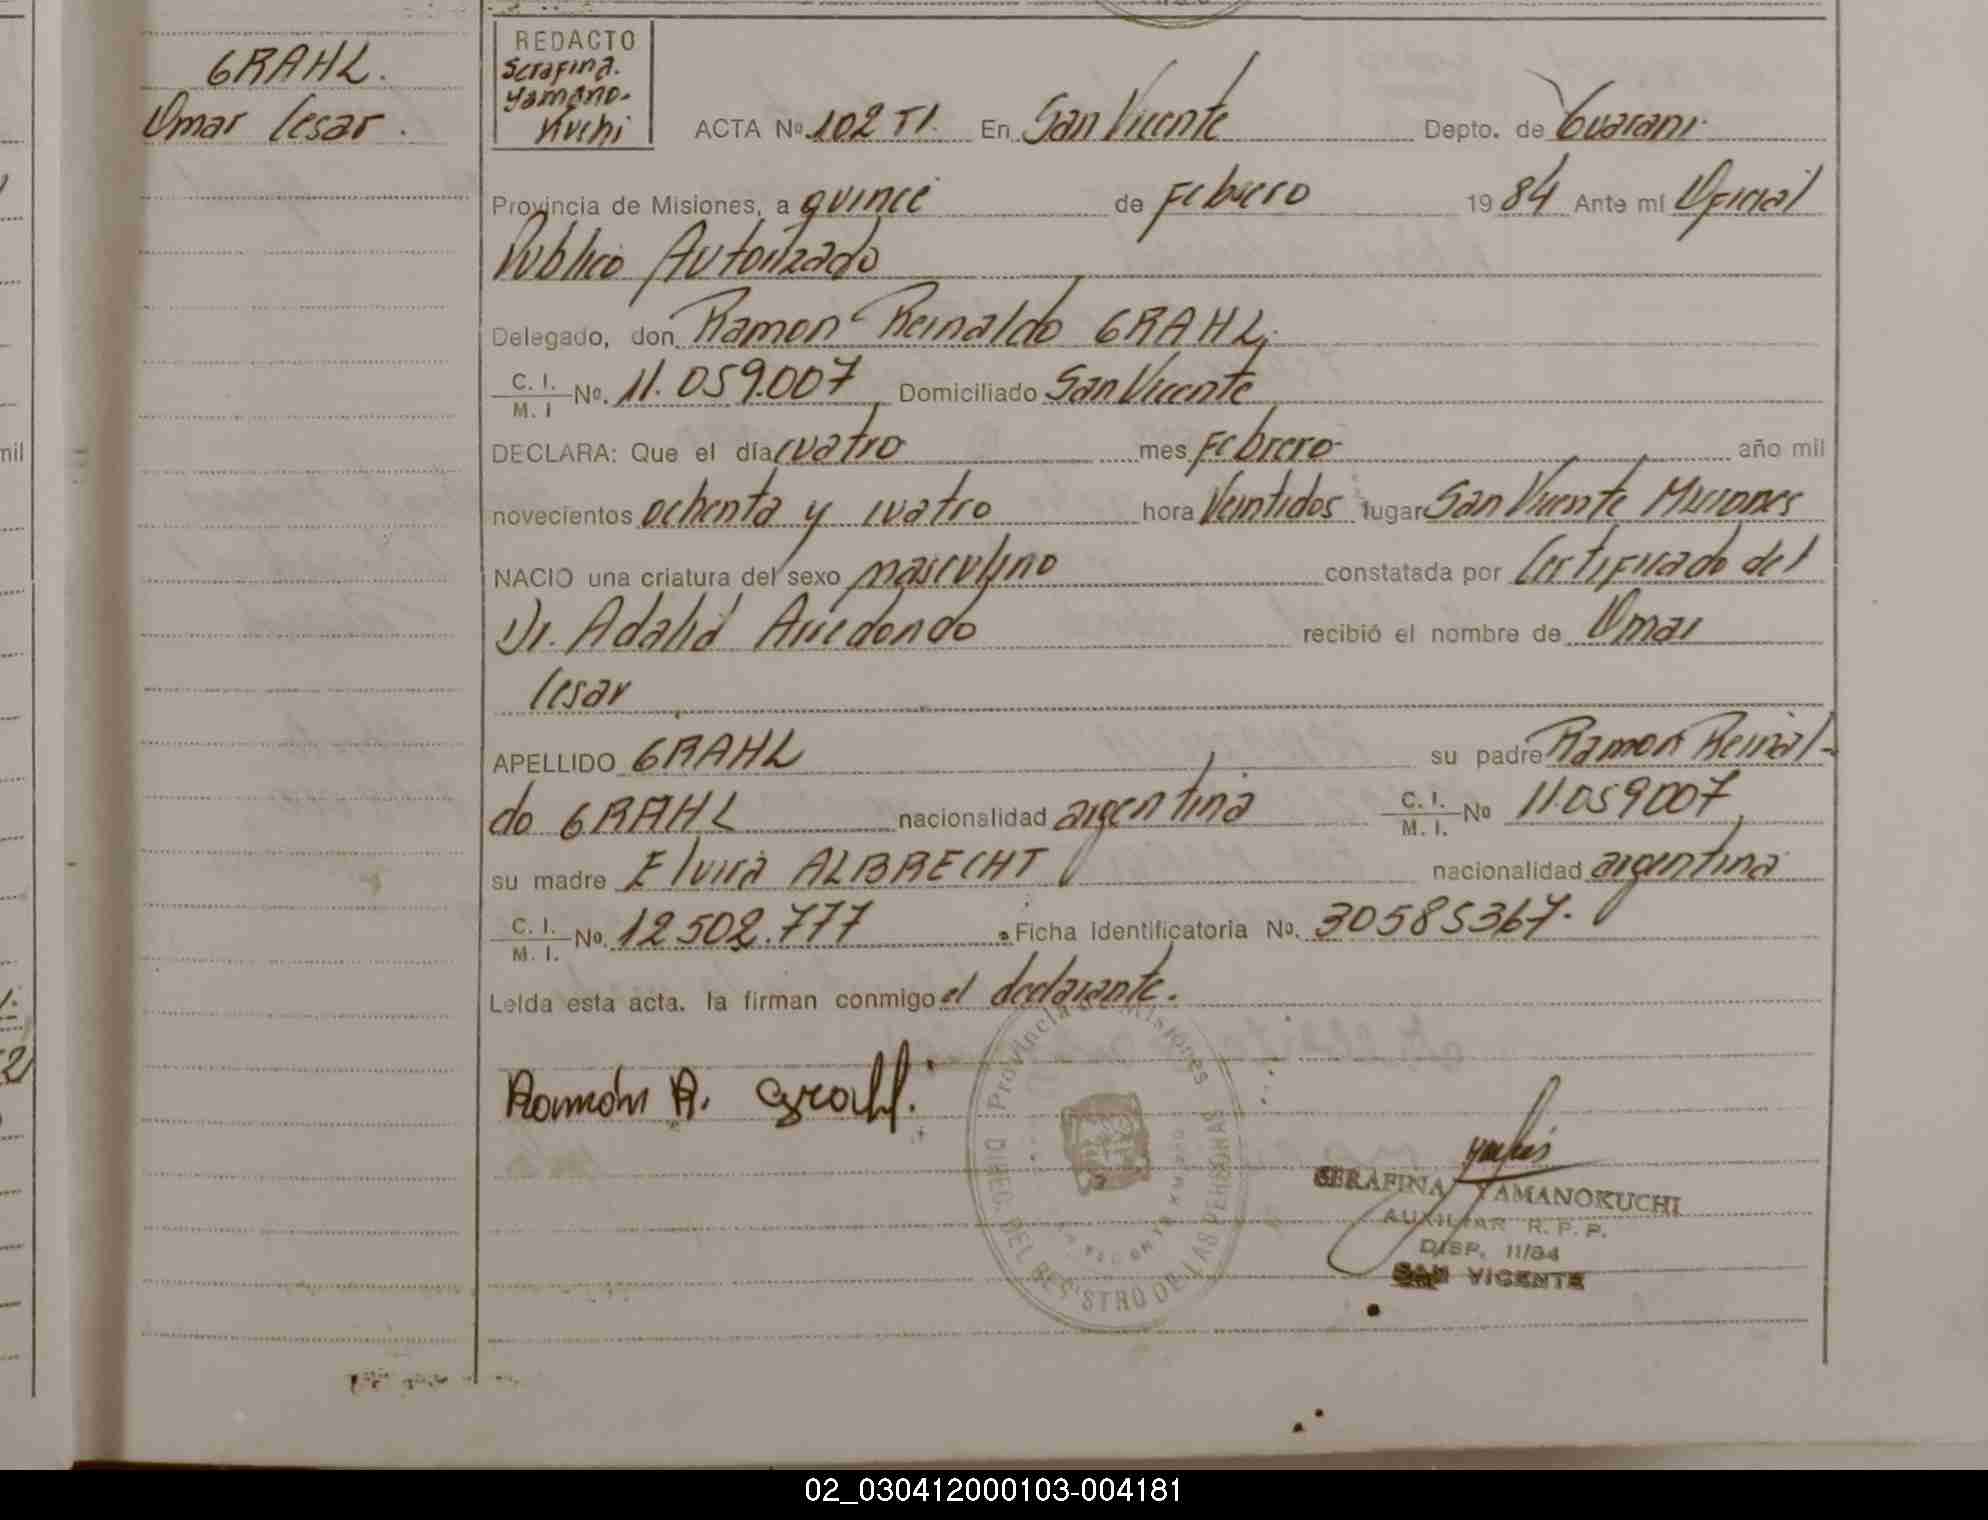 GRAHL.
Omar Cesar.
REDACTO
Serafina.
Yamano-
Kuchi
ACTA Nº 102 TI. En San Vicente Depto. de Guarani.
Provincia de Misiones, a quince de Febrero 1984 Ante mi Oficial
Publico Autorizado
Delegado, don Ramon Reinaldo GRAHL,
C. I. / M. I Nº. 11.059.007 Domiciliado San Vicente
DECLARA: Que el día cuatro mes Febrero año mil
novecientos ochenta y cuatro hora Veintidos lugar San Vicente Misiones
NACIO una criatura del sexo masculino constatada por Certificado del
Dr. Adalid Arredondo recibió el nombre de Omar
Cesar
APELLIDO GRAHL su padre Ramon Reinal-
do GRAHL nacionalidad argentina C. I. / M. I. Nº 11.059007
su madre Elvira ALBRECHT nacionalidad argentina
C. I. / M. I. Nº. 12.502.777 Ficha identificatoria Nº. 30585367.
Leída esta acta. la firman conmigo el declarante.
Provincia de Misiones
DIREC. DEL REGISTRO DE LAS PERSONAS
Ramón R. Grahl.
SERAFINA YAMANOKUCHI
AUXILIAR R. P. P.
DISP. 11/84
SAN VICENTE
02_030412000103-004181